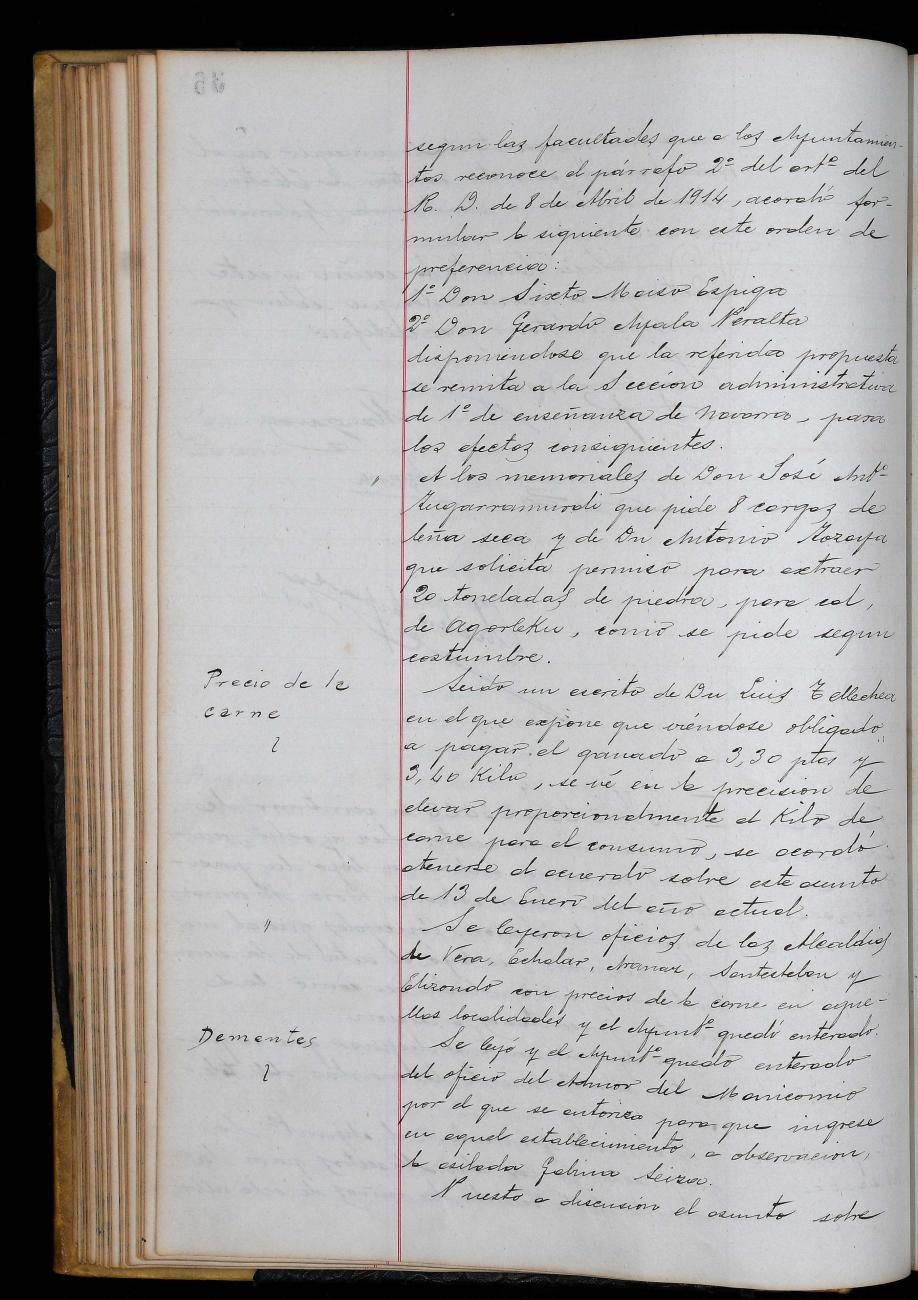 segun las facultades que a los Ayuntamien-
tos reconoce el párrafo 2º del artº del
R. D. de 8 de Abril de 1914, acordó for-
mular la siguiente con este orden de
preferencia:
1º Don Sixto Maiso Espiga
2º Don Gerardo Ayala Peralta
disponiendose que la referida propuesta
se remita a la Sección administrativa
de 1ª de enseñanza de Navarra, para
los efectos consiguientes.
A los memoriales de Don José Antº
Zugarramurdi que pide 8 cargas de
leña seca y de Dn Antonio Zozaya
que solicita permiso para extraer
20 toneladas de piedra, para cal,
de Agorleku, como se pide segun
costumbre.
Precio de la
carne
Leido un escrito de Dn Luis Tellechea
en el que expone que viéndose obligado
a pagar el ganado a 3,30 ptas y
3,40 Kilo, se vé en la precision de
elevar proporcionalmente el Kilo de
carne para el consumo, se acordó
atenerse al acuerdo sobre este asunto
de 13 de Enero del año actual.
"
Se leyeron oficios de las Alcaldias
de Vera, Echalar, Aranaz, Santesteban y
Elizondo con precios de la carne en aque-
llas localidades y el Ayuntº quedó enterado.
Dementes
Se leyó y el Ayuntº quedo enterado
del oficio del Admor del Manicomio
por el que se autoriza para que ingrese
en aquel establecimiento, a observacion,
la asilada Gabina Leiza.
Puesto a discusion el asunto sobre